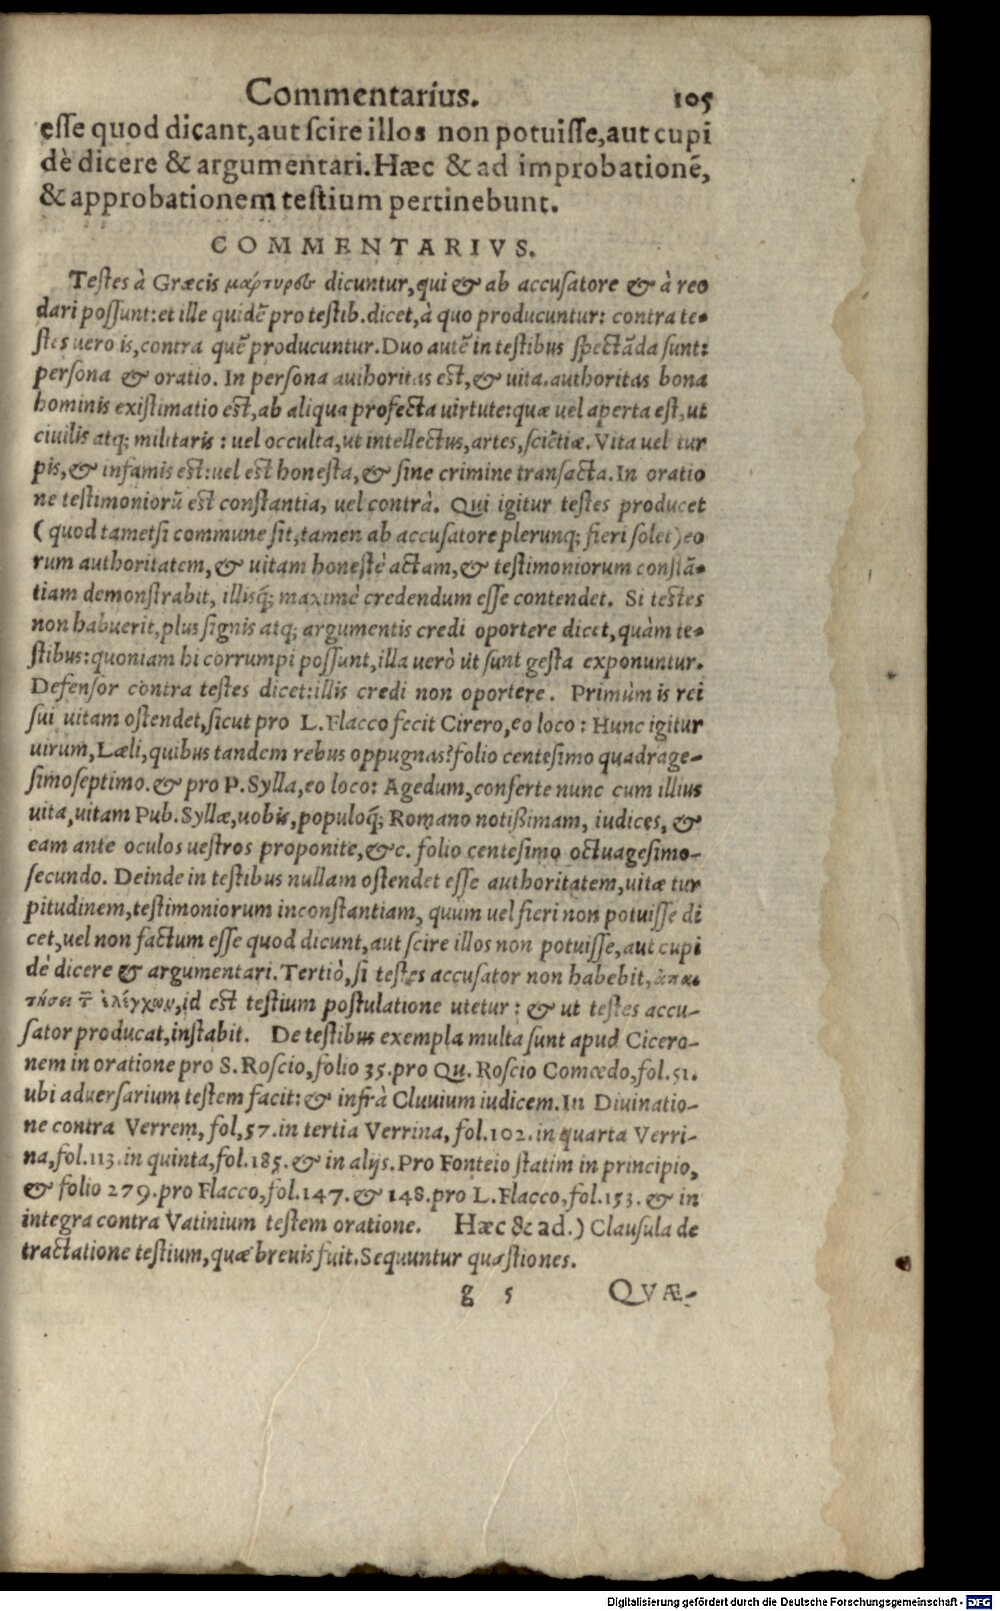 Commentarius. 105
esse quod dicant,aut scire illos non potuisse,aut cupi
dè dicere & argumentari.Hæc & ad improbationẽ,
& approbationem testium pertinebunt.
COMMENTARIVS.
Testes à Græcis μαρτυρες dicuntur,qui & ab accusatore & à reo
dari possunt:et ille quidẽ pro testib.dicet,à quo producuntur: contra te-
stes uero is,contra quẽ producuntur.Duo autẽ in testibus spectãda sunt:
persona & oratio. In persona authoritas est,& uita.authoritas bona
hominis existimatio est,ab aliqua profecta uirtute:quæ uel aperta est,ut
ciuilis atq; militaris : uel occulta,ut intellectus,artes,sciẽtiæ. Vita uel tur
pis,& infamis est:uel est honesta,& sine crimine transacta.In oratio
ne testimoniorũ est constantia, uel contrà. Qui igitur testes producet
( quod tametsi commune sit,tamen ab accusatore plerunq; fieri solet) eo
rum authoritatem,& uitam honestè actam,& testimoniorum constã-
tiam demonstrabit, illisq́; maximè credendum esse contendet. Si testes
non habuerit,plus signis atq; argumentis credi oportere dicet,quàm te-
stibus:quoniam hi corrumpi possunt,illa uerò ut sunt gesta exponuntur.
Defensor contra testes dicet:illis credi non oportere. Primùm is rei
sui uitam ostendet,sicut pro L.Flacco fecit Cicero,eo loco: Hunc igitur
uirum,Læli,quibus tandem rebus oppugnas?folio centesimo quadrage-
simoseptimo.& pro P.Sylla,eo loco: Agedum,conferte nunc cum illius
uita,uitam Pub.Syllæ,uobis,populoq́; Romano notißimam, iudices, &
eam ante oculos uestros proponite,&c. folio centesimo octuagesimo-
secundo. Deinde in testibus nullam ostendet esse authoritatem,uitæ tur
pitudinem,testimoniorum inconstantiam, quum uel fieri non potuisse di
cet,uel non factum esse quod dicunt,aut scire illos non potuisse,aut cupi
dè dicere & argumentari.Tertiò,si testes accusator non habebit,ἀπαι
τήσει τ ἐλέγχων,id est testium postulatione utetur : & ut testes accu-
sator producat,instabit. De testibus exempla multa sunt apud Cicero-
nem in oratione pro S. Roscio,folio 35.pro Qu. Roscio Comœdo,fol.51.
ubi aduersarium testem facit: & infrà Cluuium iudicem.In Diuinatio-
ne contra Verrem, fol,57.in tertia Verrina, fol.102.in quarta Verri-
na,fol.113.in quinta,fol.185.& in alijs.Pro Fonteio statim in principio,
& folio 279.pro Flacco,fol.147.& 148.pro L.Flacco,fol.153. & in
integra contra Vatinium testem oratione. Hæc & ad.) Clausula de
tractatione testium,quæ breuis fuit.Sequuntur quæstiones.
g 5 QVÆ-
Digitalisierung gefördert durch die Deutsche Forschungsgemeinschaft - DFG